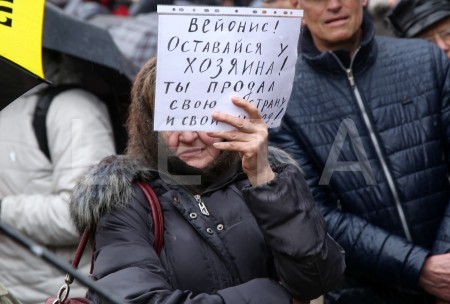 Вейонис!
Оставайся у
хозяина!
Ты продал
свою страну
и свой народ!
LETA